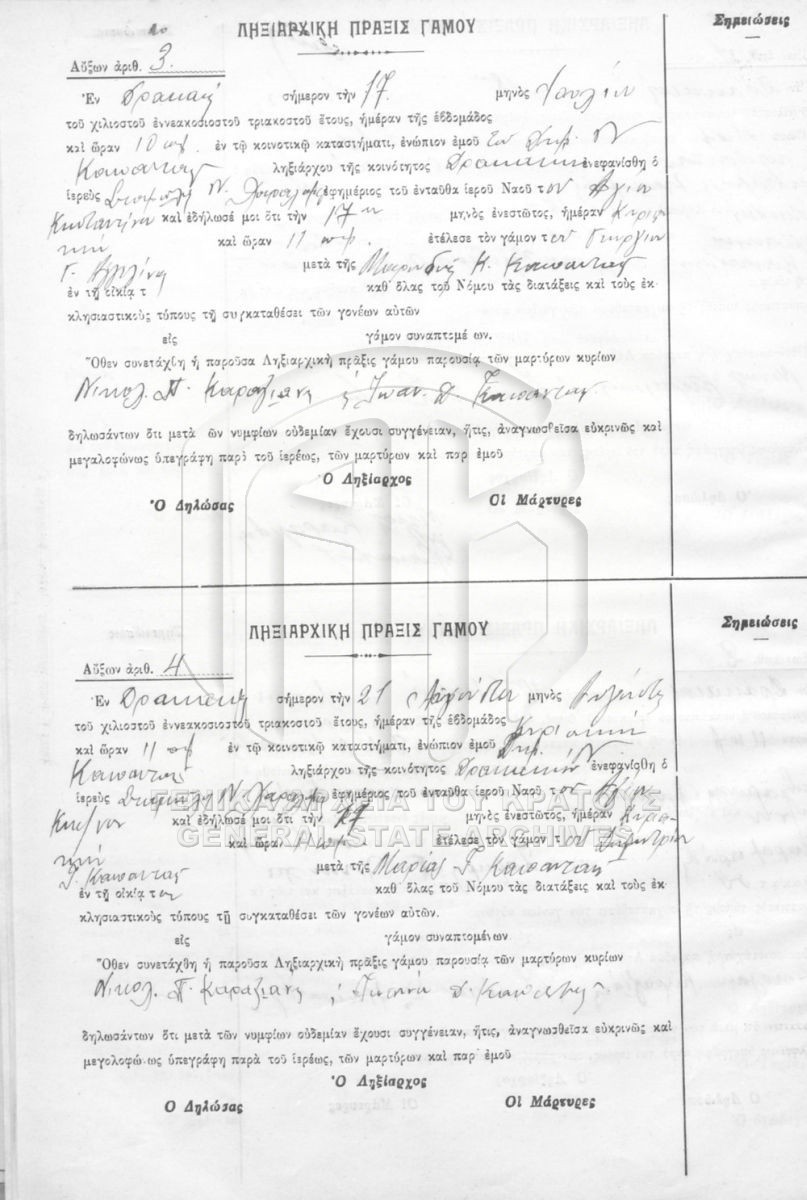 ΛΗΞΙΑΡΧΙΚΗ ΠΡΑΞΙΣ ΓΑΜΟΥ
Σημειώσεις
Αὔξων ἀριθ. 3.
Ἐν σήμερον τὴν 17 μηνὸς Ἰουλίου
τοῦ χιλιοστοῦ ἐννεακοσιοστοῦ τριακοστοῦ ἔτους, ἡμέραν τῆς ἑβδομάδος
καὶ ὥραν 10 πμ. ἐν τῷ κοινοτικῷ καταστήματι, ἐνώπιον ἐμοῦ τοῦ Δημ. Ν.
Καπαντας ληξιάρχου τῆς κοινότητος ἐνεφανίσθη ὁ
ἱερεὺς Ν. ἐφημέριος τοῦ ἐνταῦθα ἱεροῦ Ναοῦ τοῦ Ἁγίου
Κωσταντίνου καὶ ἐδήλωσέ μοι ὅτι τὴν 17ην μηνὸς ἐνεστῶτος, ἡμέραν Κυρια
κὴν καὶ ὥραν 11 πμ. ἐτέλεσε τὸν γάμον τοῦ Γεωργίου
Γ. μετὰ τῆς Κ. Καπαντας
ἐν τῇ οἰκίᾳ τ καθ' ὅλας τοῦ Νόμου τὰς διατάξεις καὶ τοὺς ἐκ
κλησιαστικοὺς τύπους τῇ συγκαταθέσει τῶν γονέων αὐτῶν
εἰς γάμον συναπτομέ ων.
Ὅθεν συνετάχθη ἡ παροῦσα Ληξιαρχικὴ πρᾶξις γάμου παρουσίᾳ τῶν μαρτύρων κυρίων
Νικολ. Π. Καραζιανη Ἰωαν. Δ. Καπαντας
δηλωσάντων ὅτι μετὰ ῶν νυμφίων οὐδεμίαν ἔχουσι συγγένειαν, ἥτις, ἀναγνωσθεῖσα εὐκρινῶς καὶ
μεγαλοφώνως ὑπεγράφη παρὰ τοῦ ἱερέως, τῶν μαρτύρων καὶ παρ ἐμοῦ
Ὁ Ληξίαρχος
Ὁ Δηλώσας Οἱ Μάρτυρες
ΛΗΞΙΑΡΧΙΚΗ ΠΡΑΞΙΣ ΓΑΜΟΥ
Σημειώσεις
Αὔξων ἀριθ. 4
Ἐν σήμερον τὴν 21 Αὐγούστου μηνὸς
τοῦ χιλιοστοῦ ἐννεακοσιοστοῦ τριακοσιοῦ ἔτους, ἡμέραν τῆς ἑβδομάδος Κυριακὴν
καὶ ὥραν 11 πμ ἐν τῷ κοινοτικῷ καταστήματι, ἐνώπιον ἐμοῦ Δημ. Ν.
Καπαντας ληξιάρχου τῆς κοινότητος ἐνεφανίσθη ὁ
ἱερεὺς Ν. ἐφημέριος τοῦ ἐνταῦθα ἱεροῦ Ναοῦ τοῦ Ἁγίου
ΓΕΝΙΚΑ ΑΡΧΕΙΑ ΤΟΥ ΚΡΑΤΟΥΣ
καὶ ἐδήλωσέ μοι ὅτι τὴν μηνὸς ἐνεστῶτος, ἡμέραν Κυρια
GENERAL STATE ARCHIVES
κὴν καὶ ὥραν 11 πμ. ἐτέλεσε τὸν γάμον τοῦ Δημητρίου
Γ. Καπαντας μετὰ τῆς Μαρίας Γ. Καπαντας
ἐν τῇ οἰκίᾳ του καθ' ὅλας τοῦ Νόμου τὰς διατάξεις καὶ τοὺς ἐκ
κλησιαστικοὺς τύπους τῇ συγκαταθέσει τῶν γονέων αὐτῶν.
εἰς γάμον συναπτομένων
Ὅθεν συνετάχθη ἡ παροῦσα Ληξιαρχικὴ πρᾶξις γάμου παρουσίᾳ τῶν μαρτύρων κυρίων
Νικολ. Π. Καραζιανη Δ. Καπαντας
δηλωσάντων ὅτι μετὰ τῶν νυμφίων οὐδεμίαν ἔχουσι συγγένειαν, ἥτις, ἀναγνωσθεῖσα εὐκρινῶς καὶ
μεγολοφώ ως ὑπεγράφη παρὰ τοῦ ἱερέως, τῶν μαρτύρων καὶ παρ' ἐμοῦ
Ὁ Ληξίαρχος
Ὁ Δηλώσας Οἱ Μάρτυρες